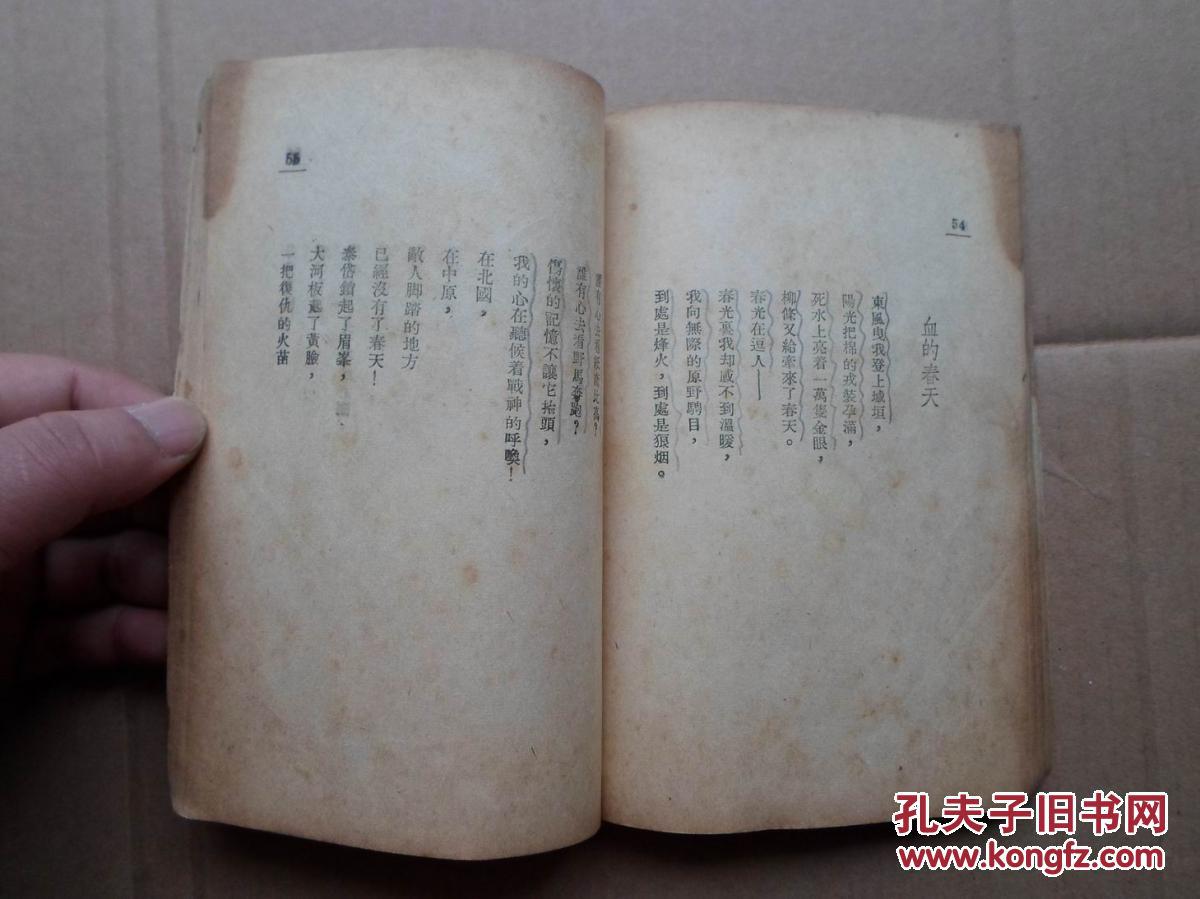 54
血的春天
東風曳我登上城垣,
陽光把棉的戎裝孕滿,
死水上亮着一萬隻金眼,
柳條又給牽來了春天。
春光在逗人——
春光裏我却感不到溫暖,
我向無際的原野騁目,
到處是烽火,到處是狼烟。
55
誰有心去看野馬奔跑?
傷懷的記憶不讓它抬頭,
我的心在聽候着戰神的呼喚!
在北國,
在中原,
敵人脚踏的地方
已經沒有了春天!
泰岱鎖起了眉峯,
大河板起了黃臉,
一把復仇的火苗
孔夫子旧书网
www.kongfz.com